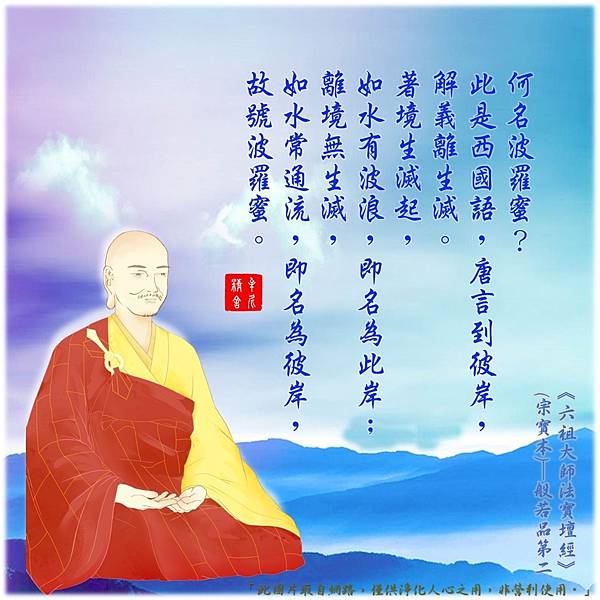 何名波羅蜜?
此是西國語,唐言到彼岸,
解義離生滅。
著境生滅起,
如水有波浪,即名為此岸;
離境無生滅,
如水常通流,即名為彼岸,
故號波羅蜜。
《六祖大師法寶壇經》
(宗寶本)—般若品第二
「此圖片取自網路,僅供淨化人心之用,非營利使用。」